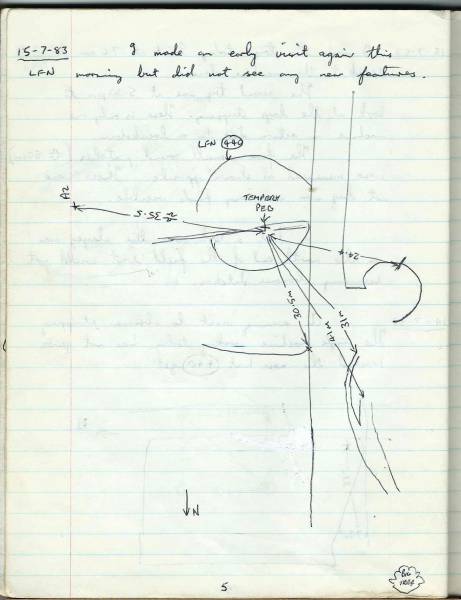 15-7-83 I made an early visit again this
LFN morning but did not see any new features.
LFN 440
A2
TEMPORY
PEG
35.5 m
29.4
30.5m
41m
31m
N
5
BIG
TREE